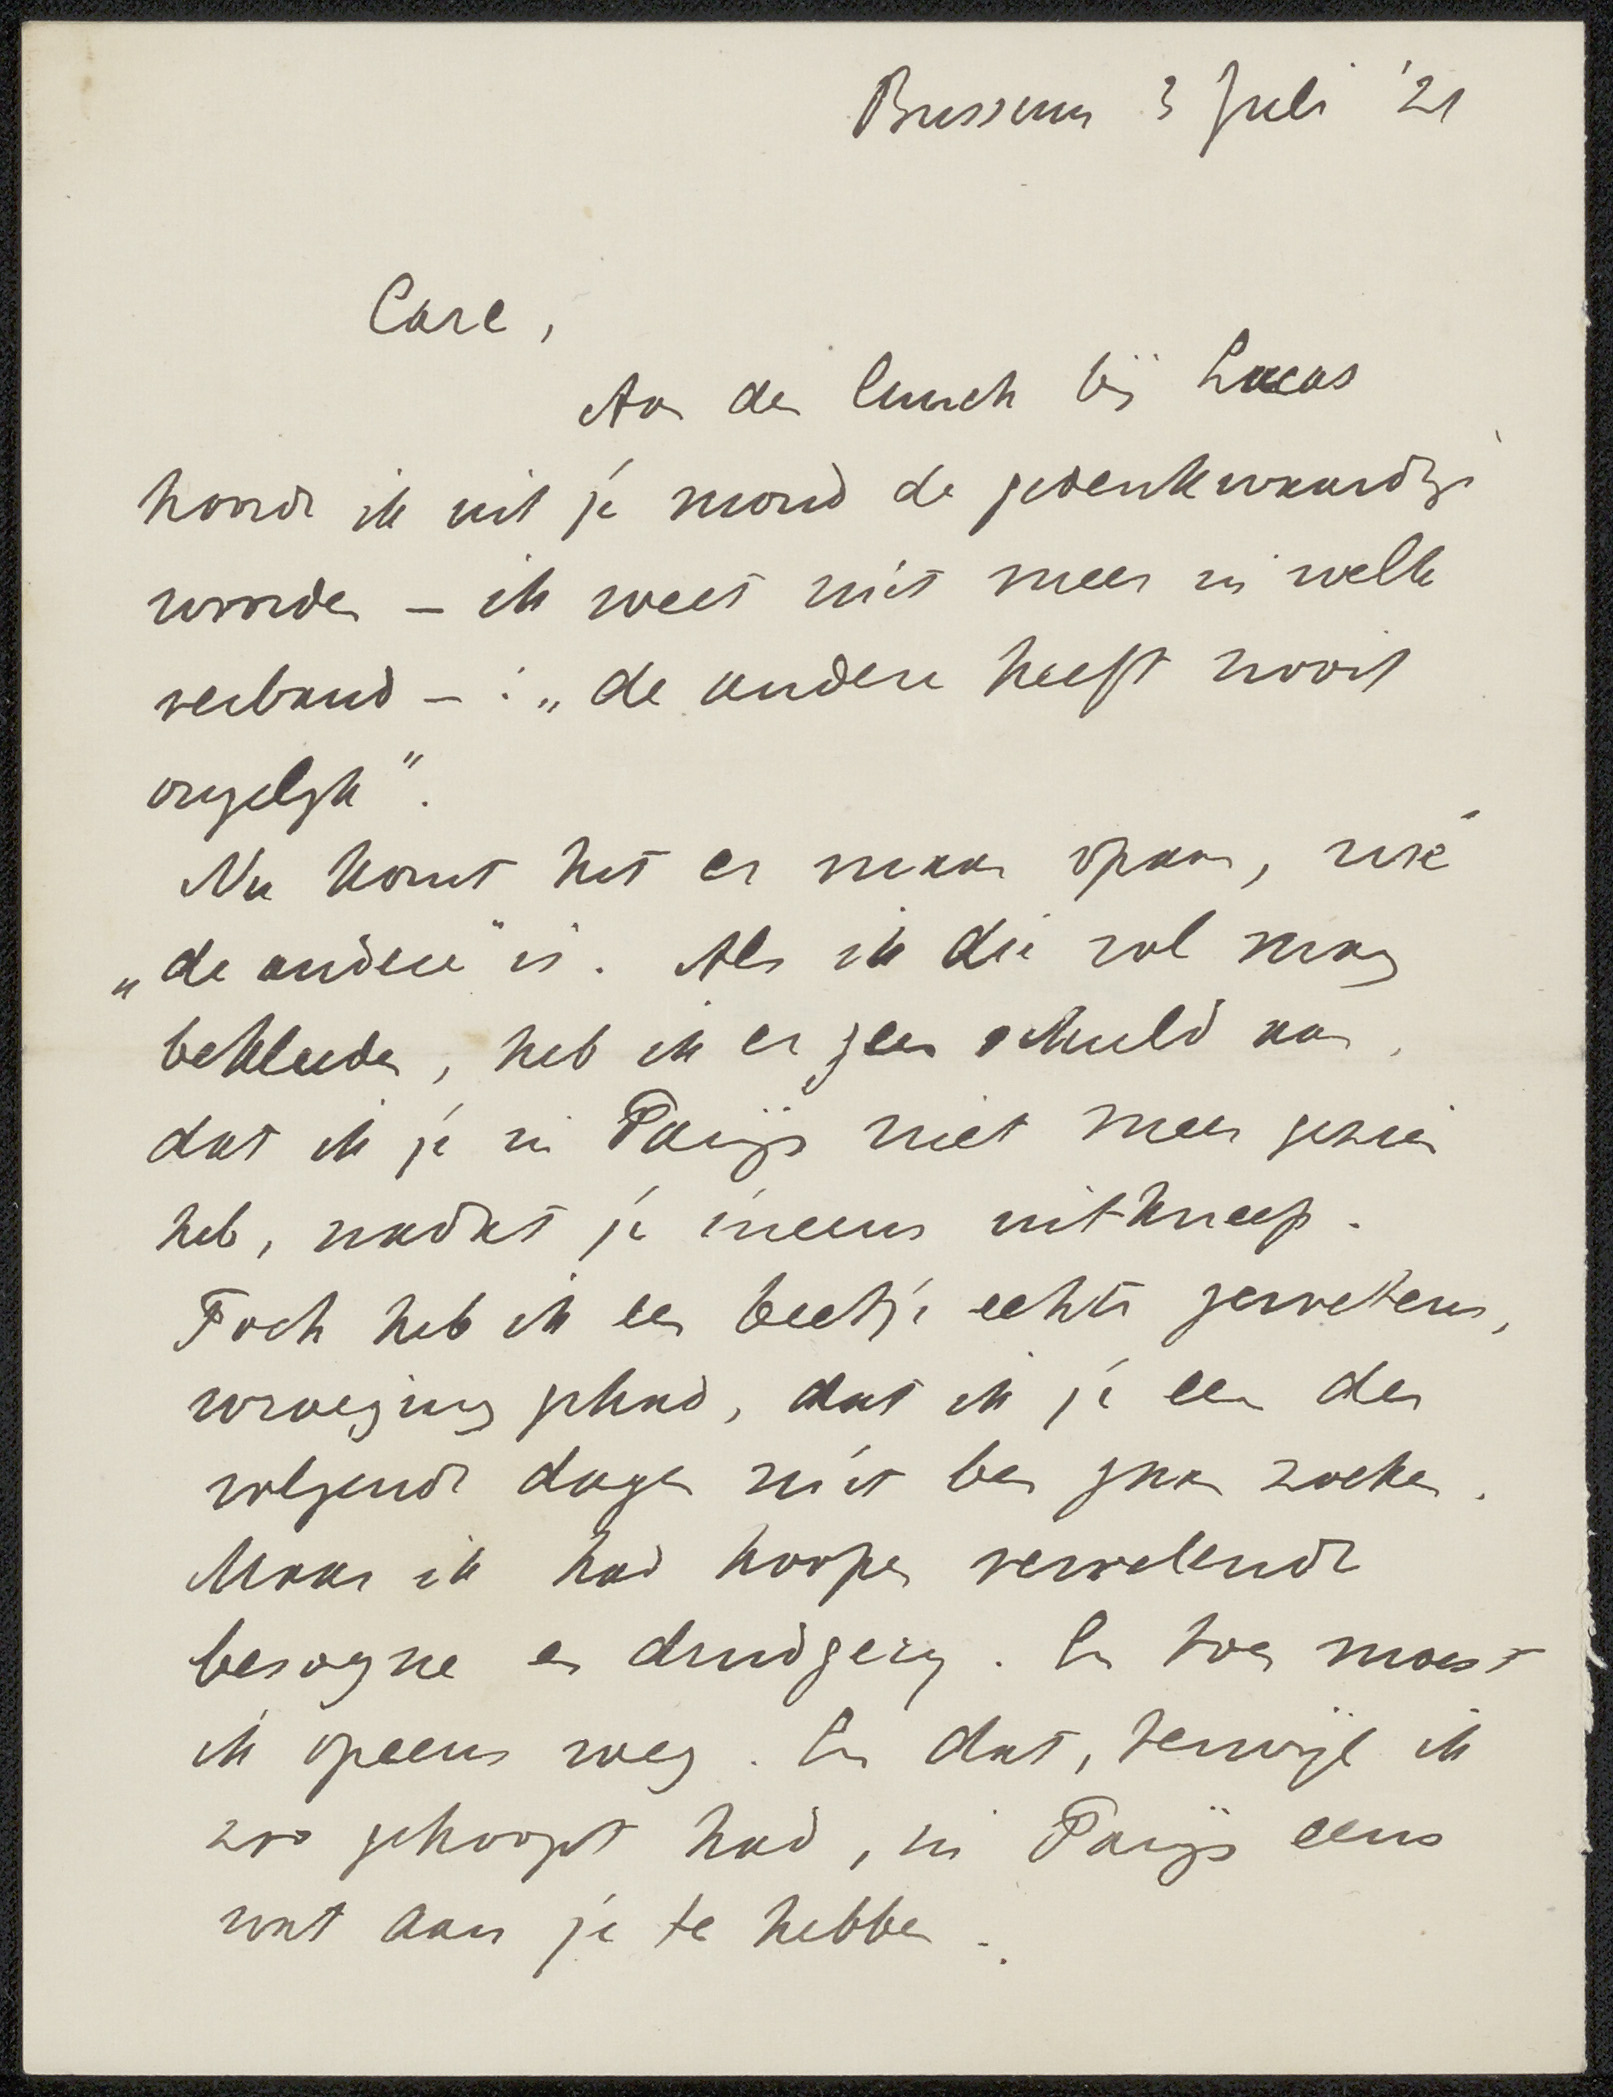 Bussum 3 Juli '21
Care,
Aan den lunch bij Lucas
hoorde ik uit je mond de gedenkwaardige
woorden – ik weet niet meer in welk
verband – : „de andere heeft nooit
ongelijk”.
Nu komt het er maar opaan, wie
„de andere” is. Als ik die rol mag
bekleeden, heb ik er geen schuld aan,
dat ik je in Parijs niet meer gezien
heb, nadat je ineens uitkneep.
Toch heb ik een beetje echte gewetens,
wroeging gehad, dat ik je een der
volgende dagen niet ben gaan zoeken.
Maar ik had hoopen vervelende
besogne en drudgery. En toen moest
ik opeens weg. En dat, terwijl ik
zoo gehoopt had, in Parijs eens
wat aan je te hebben.